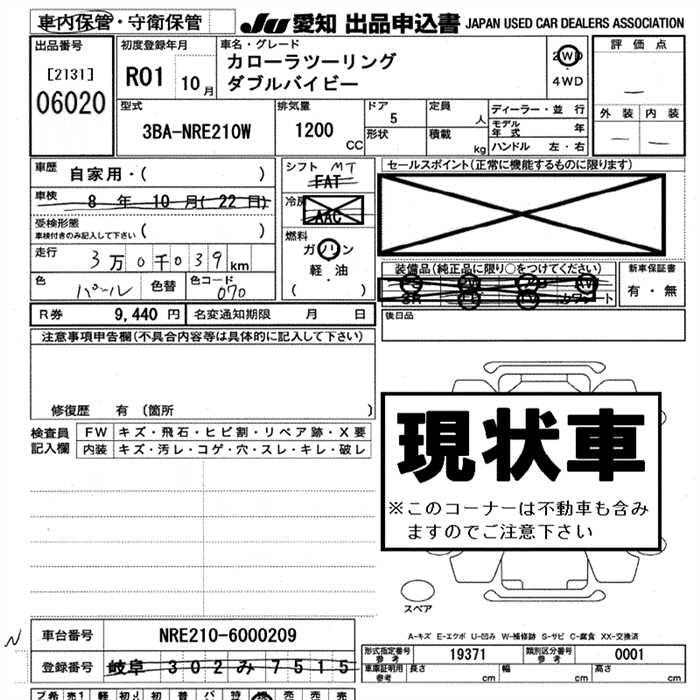 車内保管・守衛保管
JU 愛知 出品申込書 JAPAN USED CAR DEALERS ASSOCIATION
出品番号
[2131]
06020
初度登録年月
R01 10月
車名・グレード
カローラツーリング
ダブルバイビー
2WD
4WD
評価点
―
外装 内装
― ―
型式
3BA-NRE210W
排気量
1200 CC
ドア 5
形状
定員 人
積載 kg
ディーラー・並行
モデル年式 年
ハンドル 左・右
車歴 自家用・( )
車検 8 年 10 月 (22 日)
受検形態
車検付きのみ記入して下さい ( )
走行 3万0千039km
色 パール 色替 色コード 070
シフト MT
FAT
冷房 AAC
燃料
ガソリン
軽・油
( )
セールスポイント(正常に機能するものに限ります)
装備品(純正品に限り○をつけてください)
新車保証書
有・無
後日品
R券 9,440 円 名変通知期限 月 日
注意事項申告欄(不具合内容等は具体的に記入して下さい)
修復歴 有 (箇所 )
検査員記入欄
FW キズ・飛石・ヒビ割・リペア跡・X要
内装 キズ・汚レ・コゲ・穴・スレ・キレ・破レ
現状車
※このコーナーは不動車も含み
ますのでご注意下さい
スペア
A-キズ E-エクボ U-凹み W-補修跡 S-サビ C-腐食 XX-交換済
車台番号 NRE210-6000209
登録番号 岐阜 302み7515
形式指定番号 参考 19371 類別区分番号 参考 0001
車庫証明用 参考 長さ cm 幅 cm 高さ cm